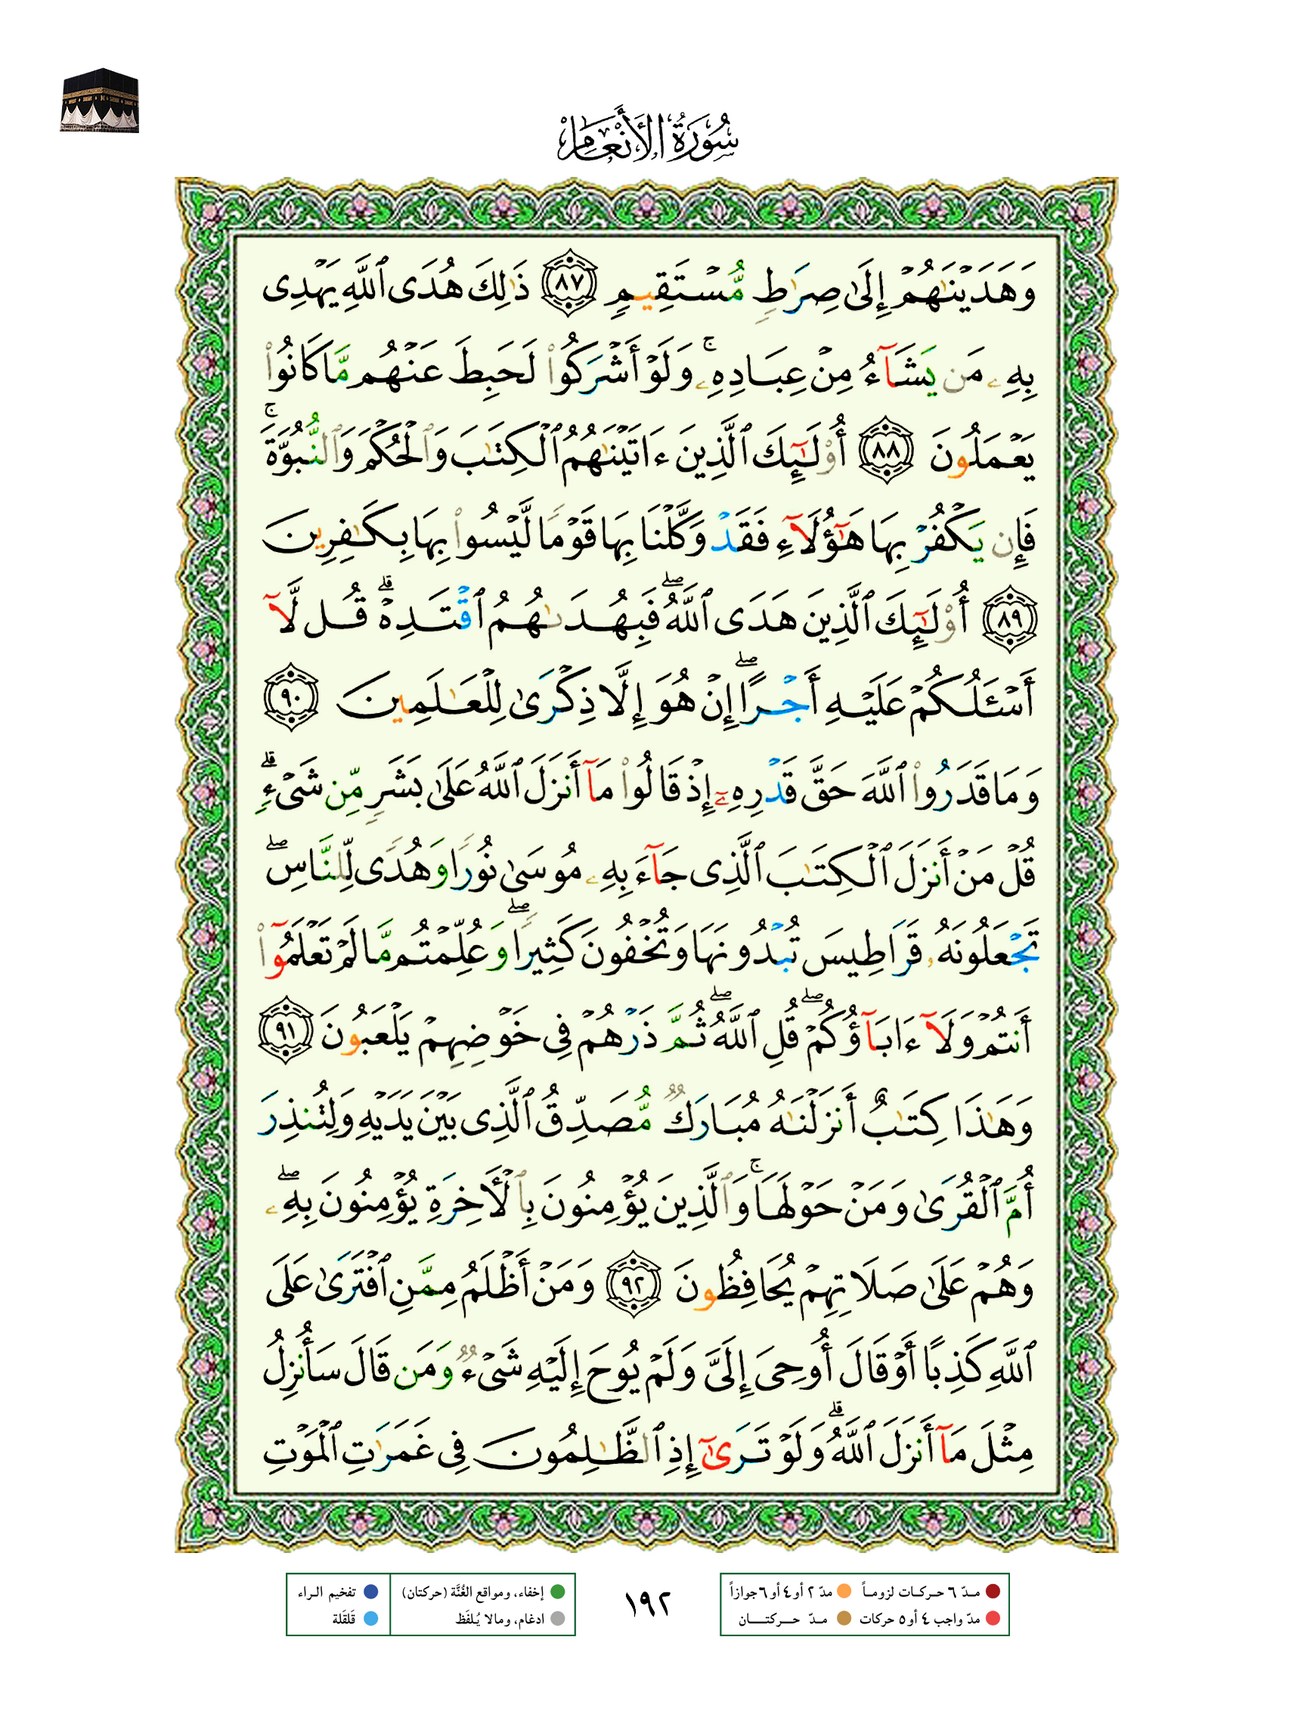 سُورَةُ الأَنْعَام
وَهَدَيْنَٰهُمْ إِلَىٰ صِرَٰطٍ مُّسْتَقِيمٍ ﴿٨٧﴾ ذَٰلِكَ هُدَى ٱللَّهِ يَهْدِى
بِهِۦ مَن يَشَآءُ مِنْ عِبَادِهِۦ ۚ وَلَوْ أَشْرَكُوا۟ لَحَبِطَ عَنْهُم مَّا كَانُوا۟
يَعْمَلُونَ ﴿٨٨﴾ أُو۟لَٰٓئِكَ ٱلَّذِينَ ءَاتَيْنَٰهُمُ ٱلْكِتَٰبَ وَٱلْحُكْمَ وَٱلنُّبُوَّةَ ۚ
فَإِن يَكْفُرْ بِهَا هَٰٓؤُلَآءِ فَقَدْ وَكَّلْنَا بِهَا قَوْمًا لَّيْسُوا۟ بِهَا بِكَٰفِرِينَ
﴿٨٩﴾ أُو۟لَٰٓئِكَ ٱلَّذِينَ هَدَى ٱللَّهُ ۖ فَبِهُدَىٰهُمُ ٱقْتَدِهْ ۗ قُل لَّآ
أَسْـَٔلُكُمْ عَلَيْهِ أَجْرًا ۖ إِنْ هُوَ إِلَّا ذِكْرَىٰ لِلْعَٰلَمِينَ ﴿٩٠﴾
وَمَا قَدَرُوا۟ ٱللَّهَ حَقَّ قَدْرِهِۦٓ إِذْ قَالُوا۟ مَآ أَنزَلَ ٱللَّهُ عَلَىٰ بَشَرٍ مِّن شَىْءٍ ۗ
قُلْ مَنْ أَنزَلَ ٱلْكِتَٰبَ ٱلَّذِى جَآءَ بِهِۦ مُوسَىٰ نُورًا وَهُدًى لِّلنَّاسِ ۖ
تَجْعَلُونَهُۥ قَرَاطِيسَ تُبْدُونَهَا وَتُخْفُونَ كَثِيرًا ۖ وَعُلِّمْتُم مَّا لَمْ تَعْلَمُوٓا۟
أَنتُمْ وَلَآ ءَابَآؤُكُمْ ۖ قُلِ ٱللَّهُ ۖ ثُمَّ ذَرْهُمْ فِى خَوْضِهِمْ يَلْعَبُونَ ﴿٩١﴾
وَهَٰذَا كِتَٰبٌ أَنزَلْنَٰهُ مُبَارَكٌ مُّصَدِّقُ ٱلَّذِى بَيْنَ يَدَيْهِ وَلِتُنذِرَ
أُمَّ ٱلْقُرَىٰ وَمَنْ حَوْلَهَا ۚ وَٱلَّذِينَ يُؤْمِنُونَ بِٱلْـَٔاخِرَةِ يُؤْمِنُونَ بِهِۦ ۖ
وَهُمْ عَلَىٰ صَلَاتِهِمْ يُحَافِظُونَ ﴿٩٢﴾ وَمَنْ أَظْلَمُ مِمَّنِ ٱفْتَرَىٰ عَلَى
ٱللَّهِ كَذِبًا أَوْ قَالَ أُوحِىَ إِلَىَّ وَلَمْ يُوحَ إِلَيْهِ شَىْءٌ وَمَن قَالَ سَأُنزِلُ
مِثْلَ مَآ أَنزَلَ ٱللَّهُ ۗ وَلَوْ تَرَىٰٓ إِذِ ٱلظَّٰلِمُونَ فِى غَمَرَٰتِ ٱلْمَوْتِ
مدّ ٦ حركات لزوماً مدّ ٢ أو ٤ أو ٦ جوازاً
مدّ واجب ٤ أو ٥ حركات مدّ حركتان
١٩٢
إخفاء، ومواقع الغُنَّة (حركتان) تفخيم الراء
ادغام، ومالا يُلفَظ قلقلة